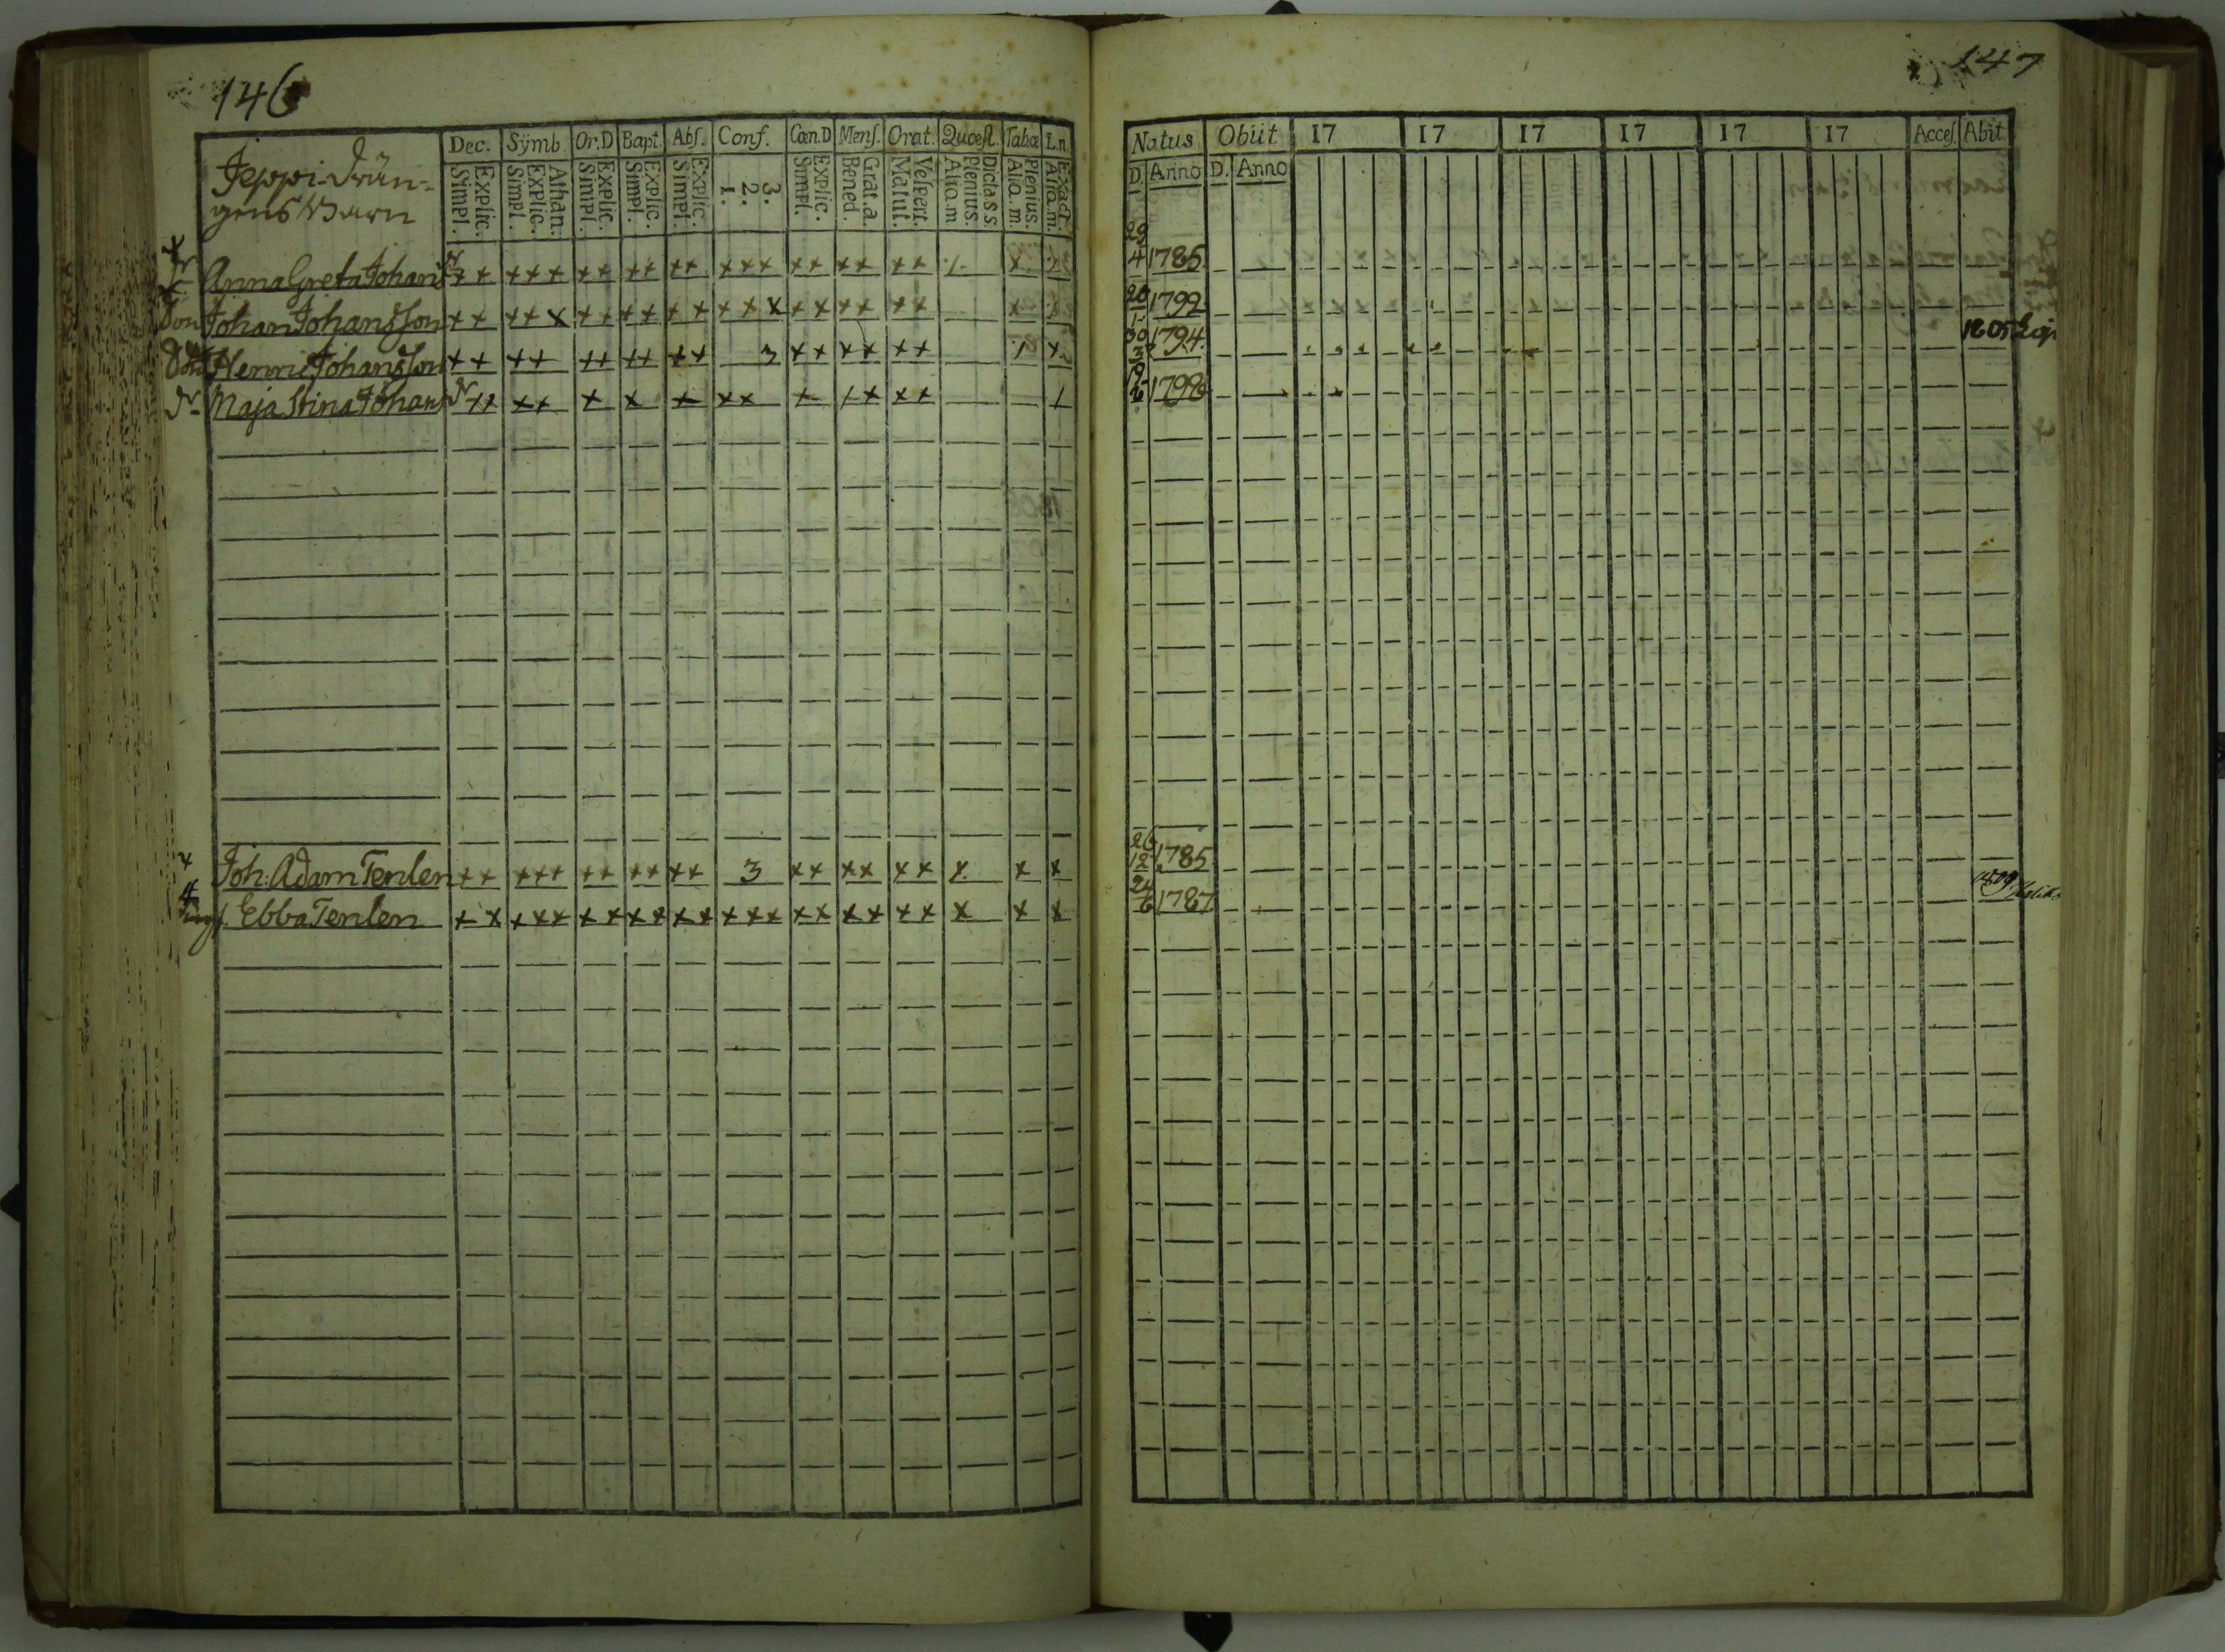 146
Dec. Sÿmb. Or.D Bapt. Abſ. Conf. Cœn.D Menſ. Orat. Quœſt. Tabœ L.n.
Explic. Simpl. Athan. Explic. Simpl. Explic. Simpl. Explic. Simpl. Explic. Simpl. 3. 2. 1. Explic. Simpl. Grat.a. Bened. Veſpert. Matut. Dicta.s.s. Plenius. Alia.m Plenius. Alia.m. Exact. Alia.m.
Jeppi-Drän-
gens Barn
Dr Anna Greta Johans Dr ++ +++ ++ ++ ++ +++ ++ ++ ++ x
Son Johan Johansson ++ ++x ++ ++ ++ ++x ++ ++ ++ x
Son Henric Johansson ++ ++ ++ ++ ++ 3 ++ ++ ++ x
Dr Maja Stina Johans Dr ++ ++ + x + ++ + ++ ++
Joh: Adam Tenlen ++ +++ ++ ++ ++ 3 ++ ++ ++ x x x
Jungf. Ebba Tenlen ++ +++ ++ ++ ++ +++ ++ ++ ++ x x x
147
Natus Obiit 17 17 17 17 17 17 Acceſ. Abit
D. Anno D. Anno
29/4 1785.
20/1 1792
30/3 1794. 1805
19/6 1796
26/12 1785.
24/6 1787 1809